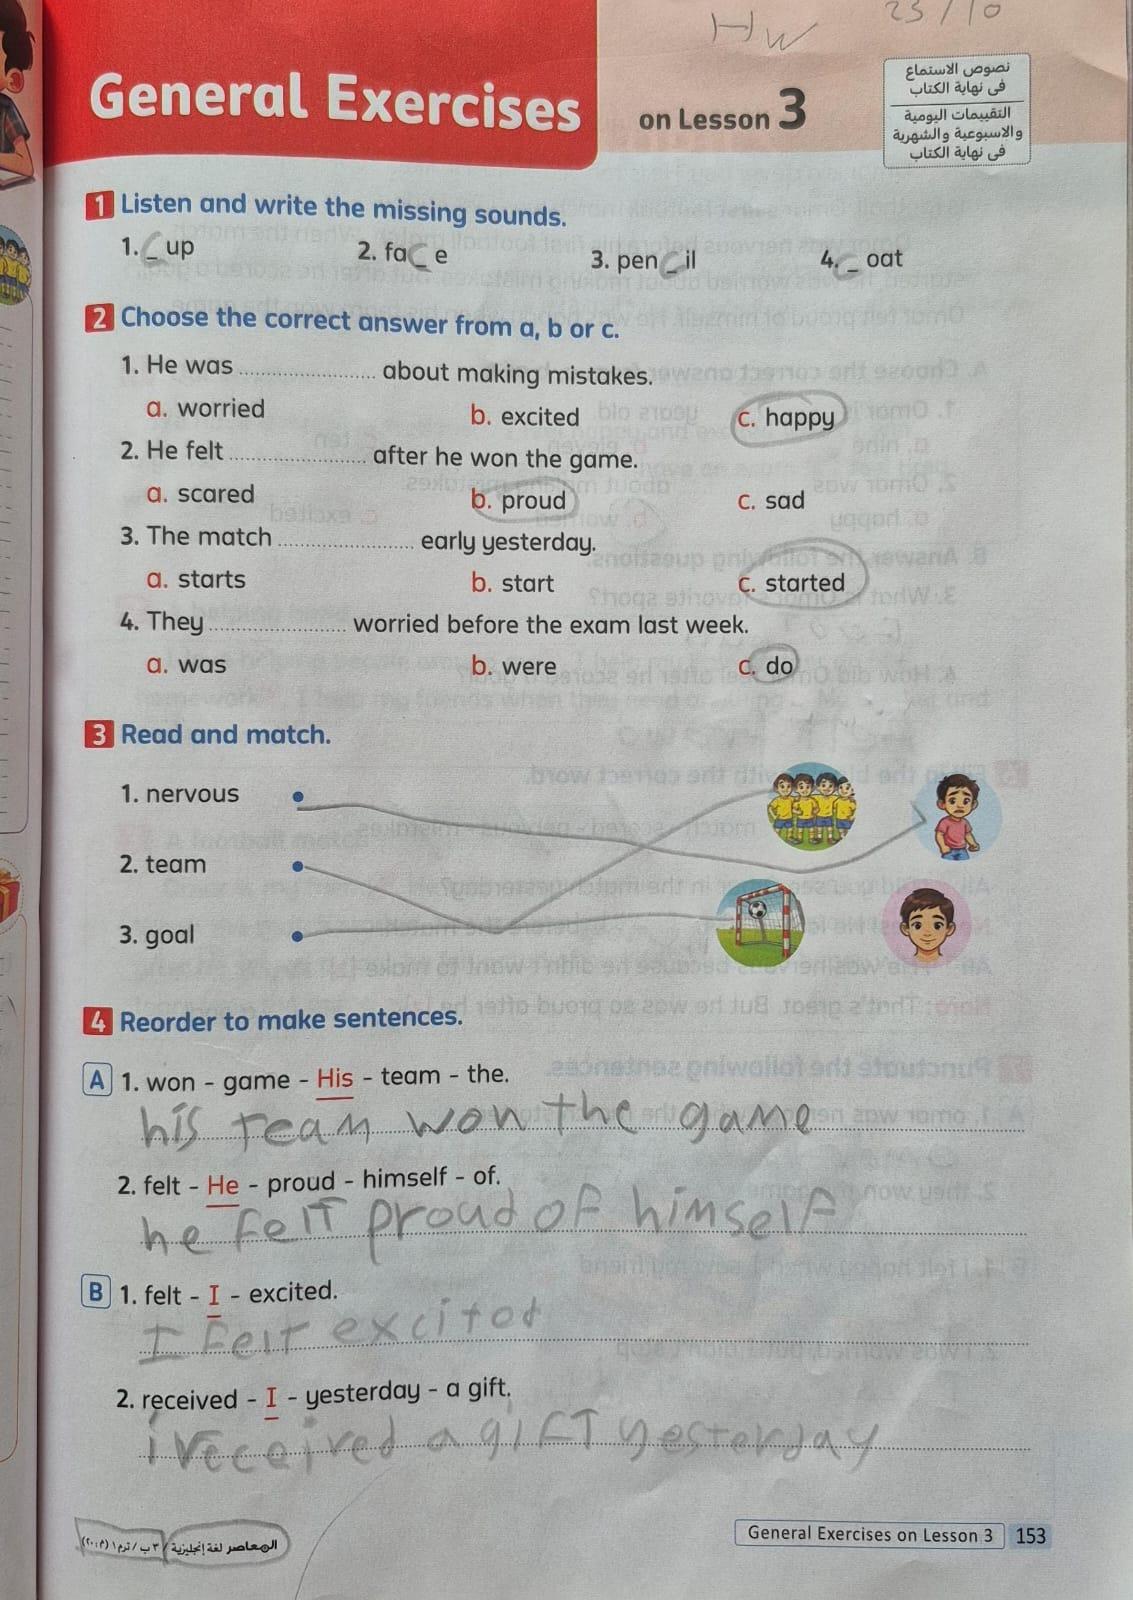 HW 25/10
General Exercises on Lesson 3
نصوص الاستماع
فى نهاية الكتاب
التقييمات اليومية
والاسبوعية والشهرية
فى نهاية الكتاب
1 Listen and write the missing sounds.
1. C up 2. fa C e 3. pen C il 4. C oat
2 Choose the correct answer from a, b or c.
1. He was ........................ about making mistakes.
a. worried b. excited c. happy
2. He felt ........................ after he won the game.
a. scared b. proud c. sad
3. The match ........................ early yesterday.
a. starts b. start c. started
4. They ........................ worried before the exam last week.
a. was b. were c. do
3 Read and match.
1. nervous
2. team
3. goal
4 Reorder to make sentences.
A 1. won - game - His - team - the.
his team won the game
2. felt - He - proud - himself - of.
he felt proud of himself
B 1. felt - I - excited.
I felt excited
2. received - I - yesterday - a gift.
i received a gift yesterday
المعاصر لغة إنجليزية / ٣ ب / ترم ١ (م: ٢٠)
General Exercises on Lesson 3 153